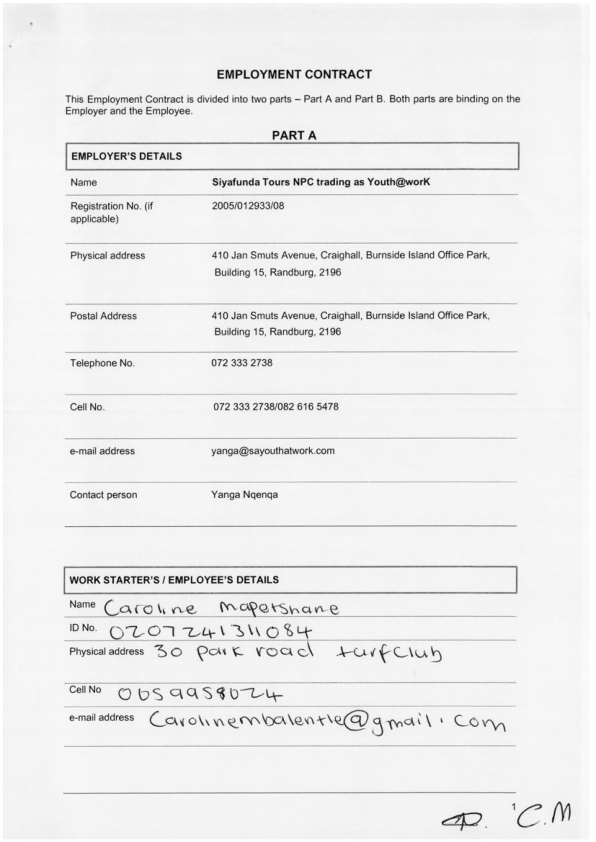 EMPLOYMENT CONTRACT
This Employment Contract is divided into two parts – Part A and Part B. Both parts are binding on the
Employer and the Employee.
PART A
EMPLOYER'S DETAILS
Name Siyafunda Tours NPC trading as Youth@worK
Registration No. (if 2005/012933/08
applicable)
Physical address 410 Jan Smuts Avenue, Craighall, Burnside Island Office Park,
Building 15, Randburg, 2196
Postal Address 410 Jan Smuts Avenue, Craighall, Burnside Island Office Park,
Building 15, Randburg, 2196
Telephone No. 072 333 2738
Cell No. 072 333 2738/082 616 5478
e-mail address yanga@sayouthatwork.com
Contact person Yanga Nqenqa
WORK STARTER'S / EMPLOYEE'S DETAILS
Name Caroline mapetshane
ID No. 0207241311084
Physical address 30 park road turfclub
Cell No 0659958024
e-mail address Carolinembalentle@gmail.com
1 C.M